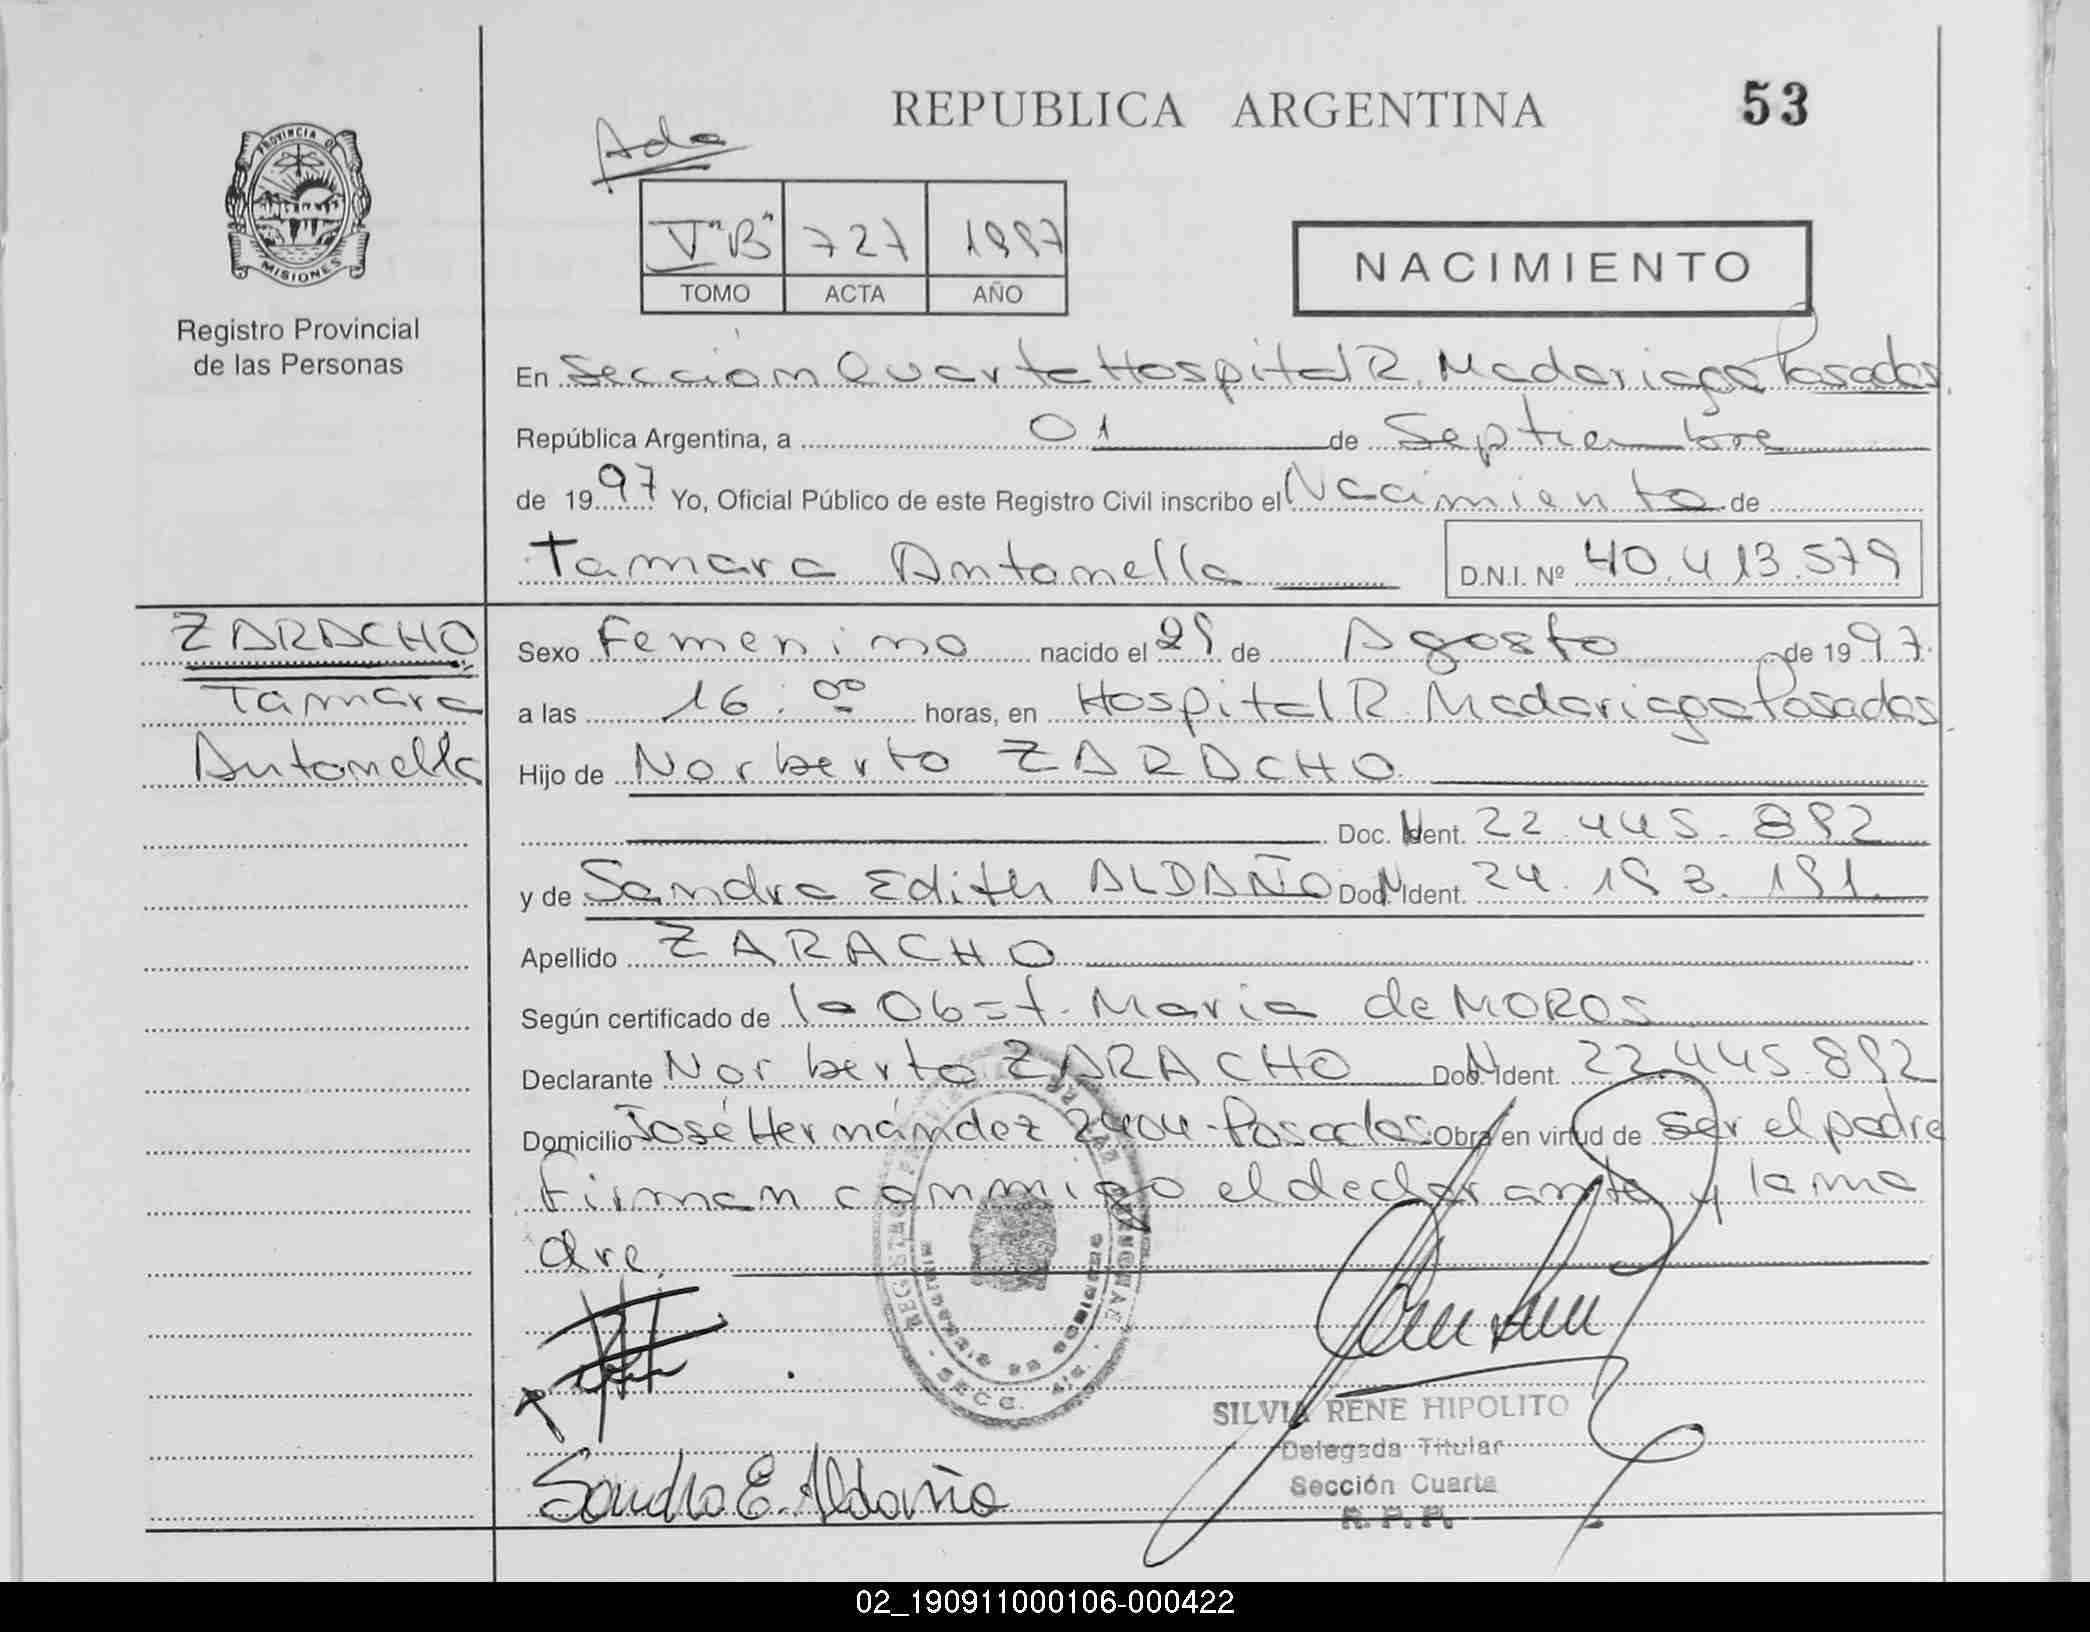 REPUBLICA ARGENTINA
53
PROVINCIA DE
MISIONES
Registro Provincial
de las Personas
V "B" 727 1997
TOMO ACTA AÑO
NACIMIENTO
En Sección Cuarta Hospital R. Madariaga Posadas.
República Argentina, a 01 de Septiembre
de 1997 Yo, Oficial Público de este Registro Civil inscribo el Nacimiento de
Tamara Antonella D.N.I. Nº 40.413.579
ZARACHO
Tamara
Antonella
Sexo Femenino nacido el 29 de Agosto de 1997.
a las 16:00 horas, en Hospital R. Madariaga Posadas.
Hijo de Norberto ZARACHO
Doc. Ident. 22.445.892
y de Sandra Edith ALDAÑO Doc. Ident. 24.193.191.
Apellido ZARACHO
Según certificado de la Obst. Maria de MOROS
Declarante Norberto ZARACHO Doc. Ident. 22.445.892
Domicilio José Hernández 2404-Posadas Obra en virtud de ser el padre
Firman conmigo el declarante y la ma
dre.
SECC. 4ta.
Sandra E. Aldaño
SILVIA RENE HIPOLITO
Delegada Titular
Sección Cuarta
R. P. P.
02_190911000106-000422